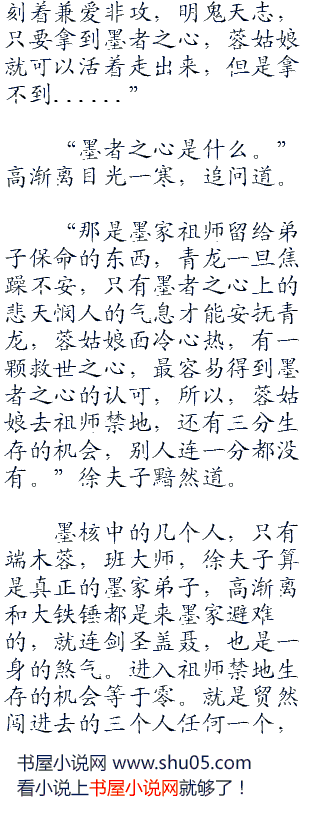 刻着兼爱非攻，明鬼天志，
只要拿到墨者之心，蓉姑娘
就可以活着走出来，但是拿
不到......”
“墨者之心是什么。”
高渐离目光一寒，追问道。
“那是墨家祖师留给弟
子保命的东西，青龙一旦焦
躁不安，只有墨者之心上的
悲天悯人的气息才能安抚青
龙，蓉姑娘面冷心热，有一
颗救世之心，最容易得到墨
者之心的认可，所以，蓉姑
娘去祖师禁地，还有三分生
存的机会，别人连一分都没
有。”徐夫子黯然道。
墨核中的几个人，只有
端木蓉，班大师，徐夫子算
是真正的墨家弟子，高渐离
和大铁锤都是来墨家避难
的，就连剑圣盖聂，也是一
身的煞气。进入祖师禁地生
存的机会等于零。就是贸然
闯进去的三个人任何一个，
书屋小说网 www.shu05.com
看小说上书屋小说网就够了！